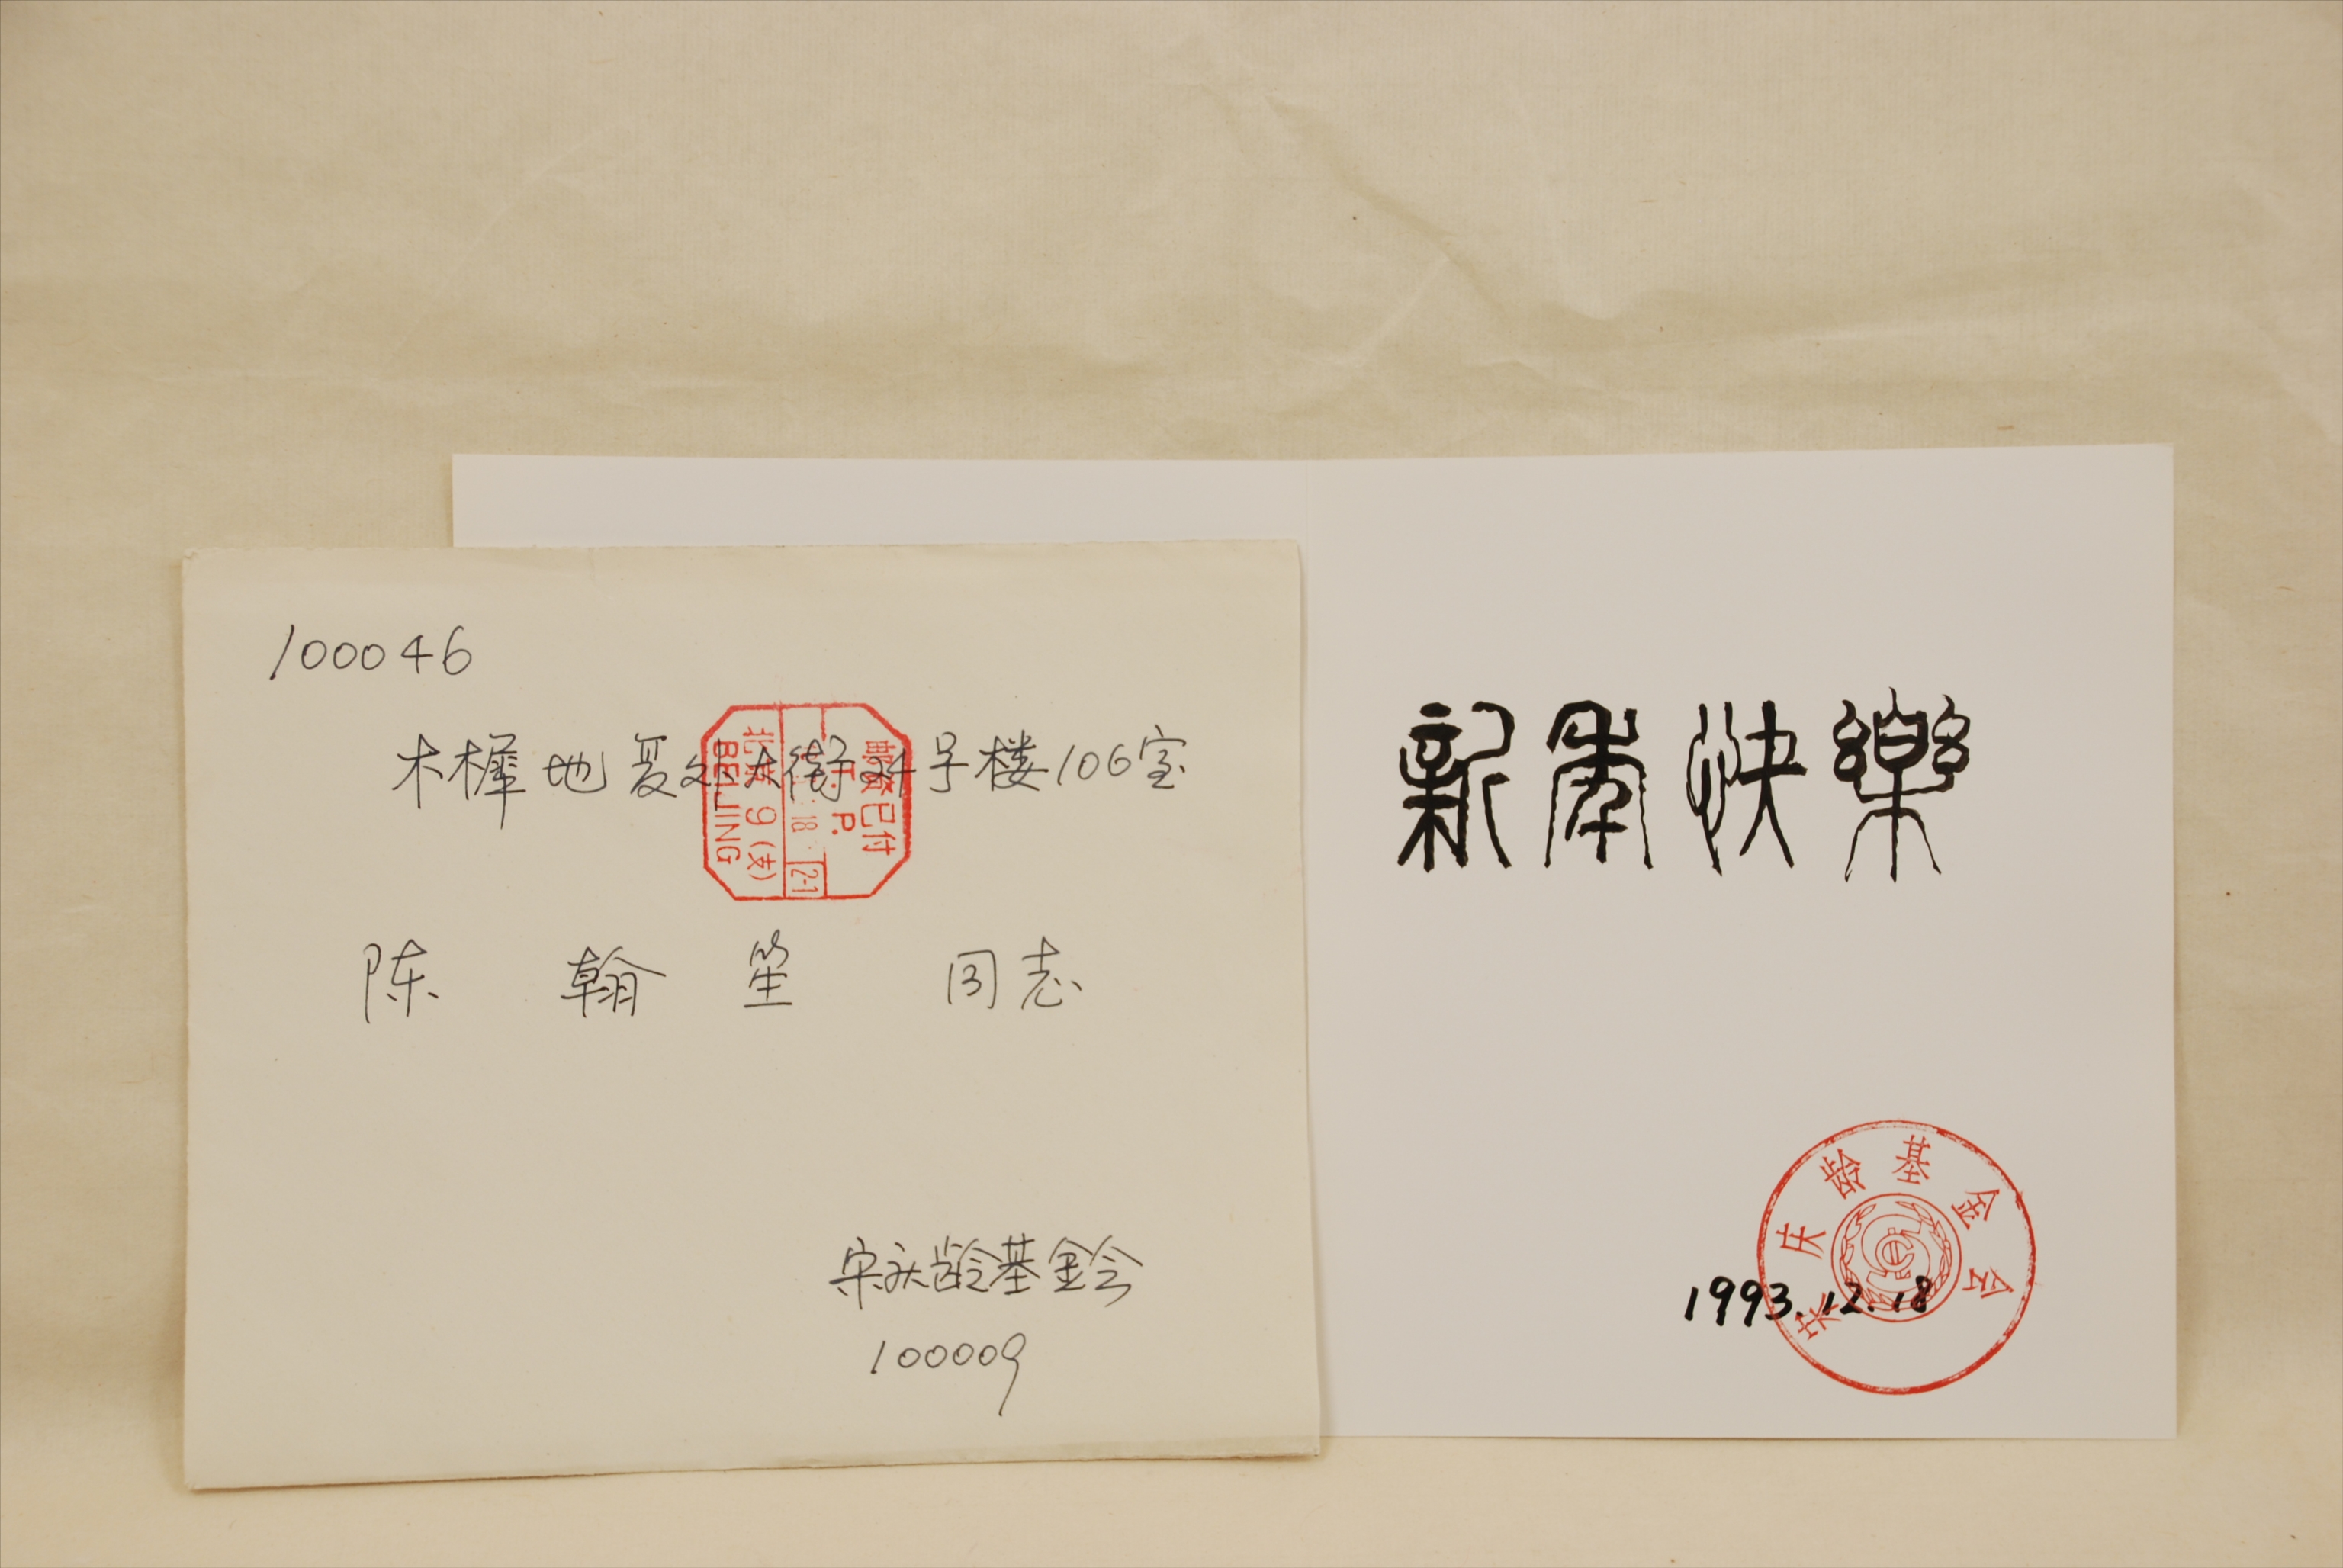 100046
木樨地复外大街24号楼106室
邮资已付
T. P.
18
北京 9(支)
BEIJING
陈 翰 笙 同志
宋庆龄基金会
100009
新年快樂
宋庆龄基金会
1993.12.18